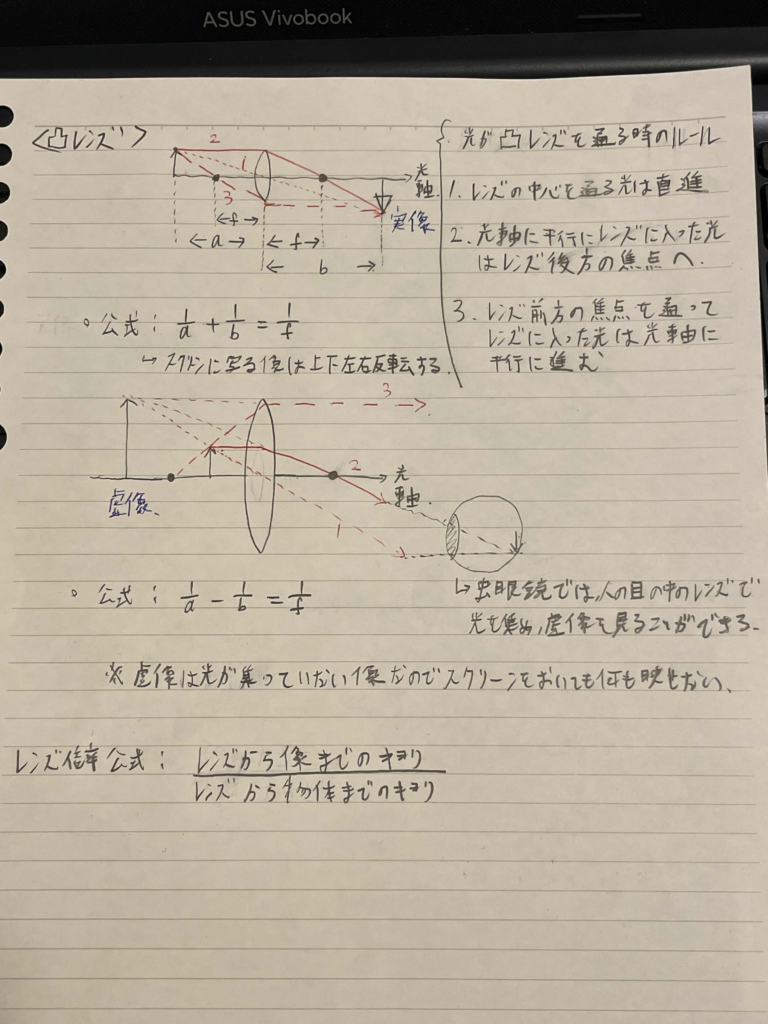 ASUS Vivobook
<凸レンズ>
2
1
3
光軸
実像
←f→
←a→
←f→
← b →
光が凸レンズを通る時のルール
1. レンズの中心を通る光は直進
2. 光軸に平行にレンズに入った光
はレンズ後方の焦点へ.
3. レンズ前方の焦点を通って
レンズに入った光は光軸に
平行に進む
○ 公式: 1/a + 1/b = 1/f
↳ スクリーンに写る像は上下左右反転する.
3
2
1
光軸.
虚像.
○ 公式: 1/a - 1/b = 1/f
↳ 虫眼鏡では,人の目の中のレンズで
光を集め,虚像を見ることができる.
※ 虚像は光が集っていない像なのでスクリーンをおいても何も映せない.
レンズ倍率公式: レンズから像までのキョリ
レンズから物体までのキョリ